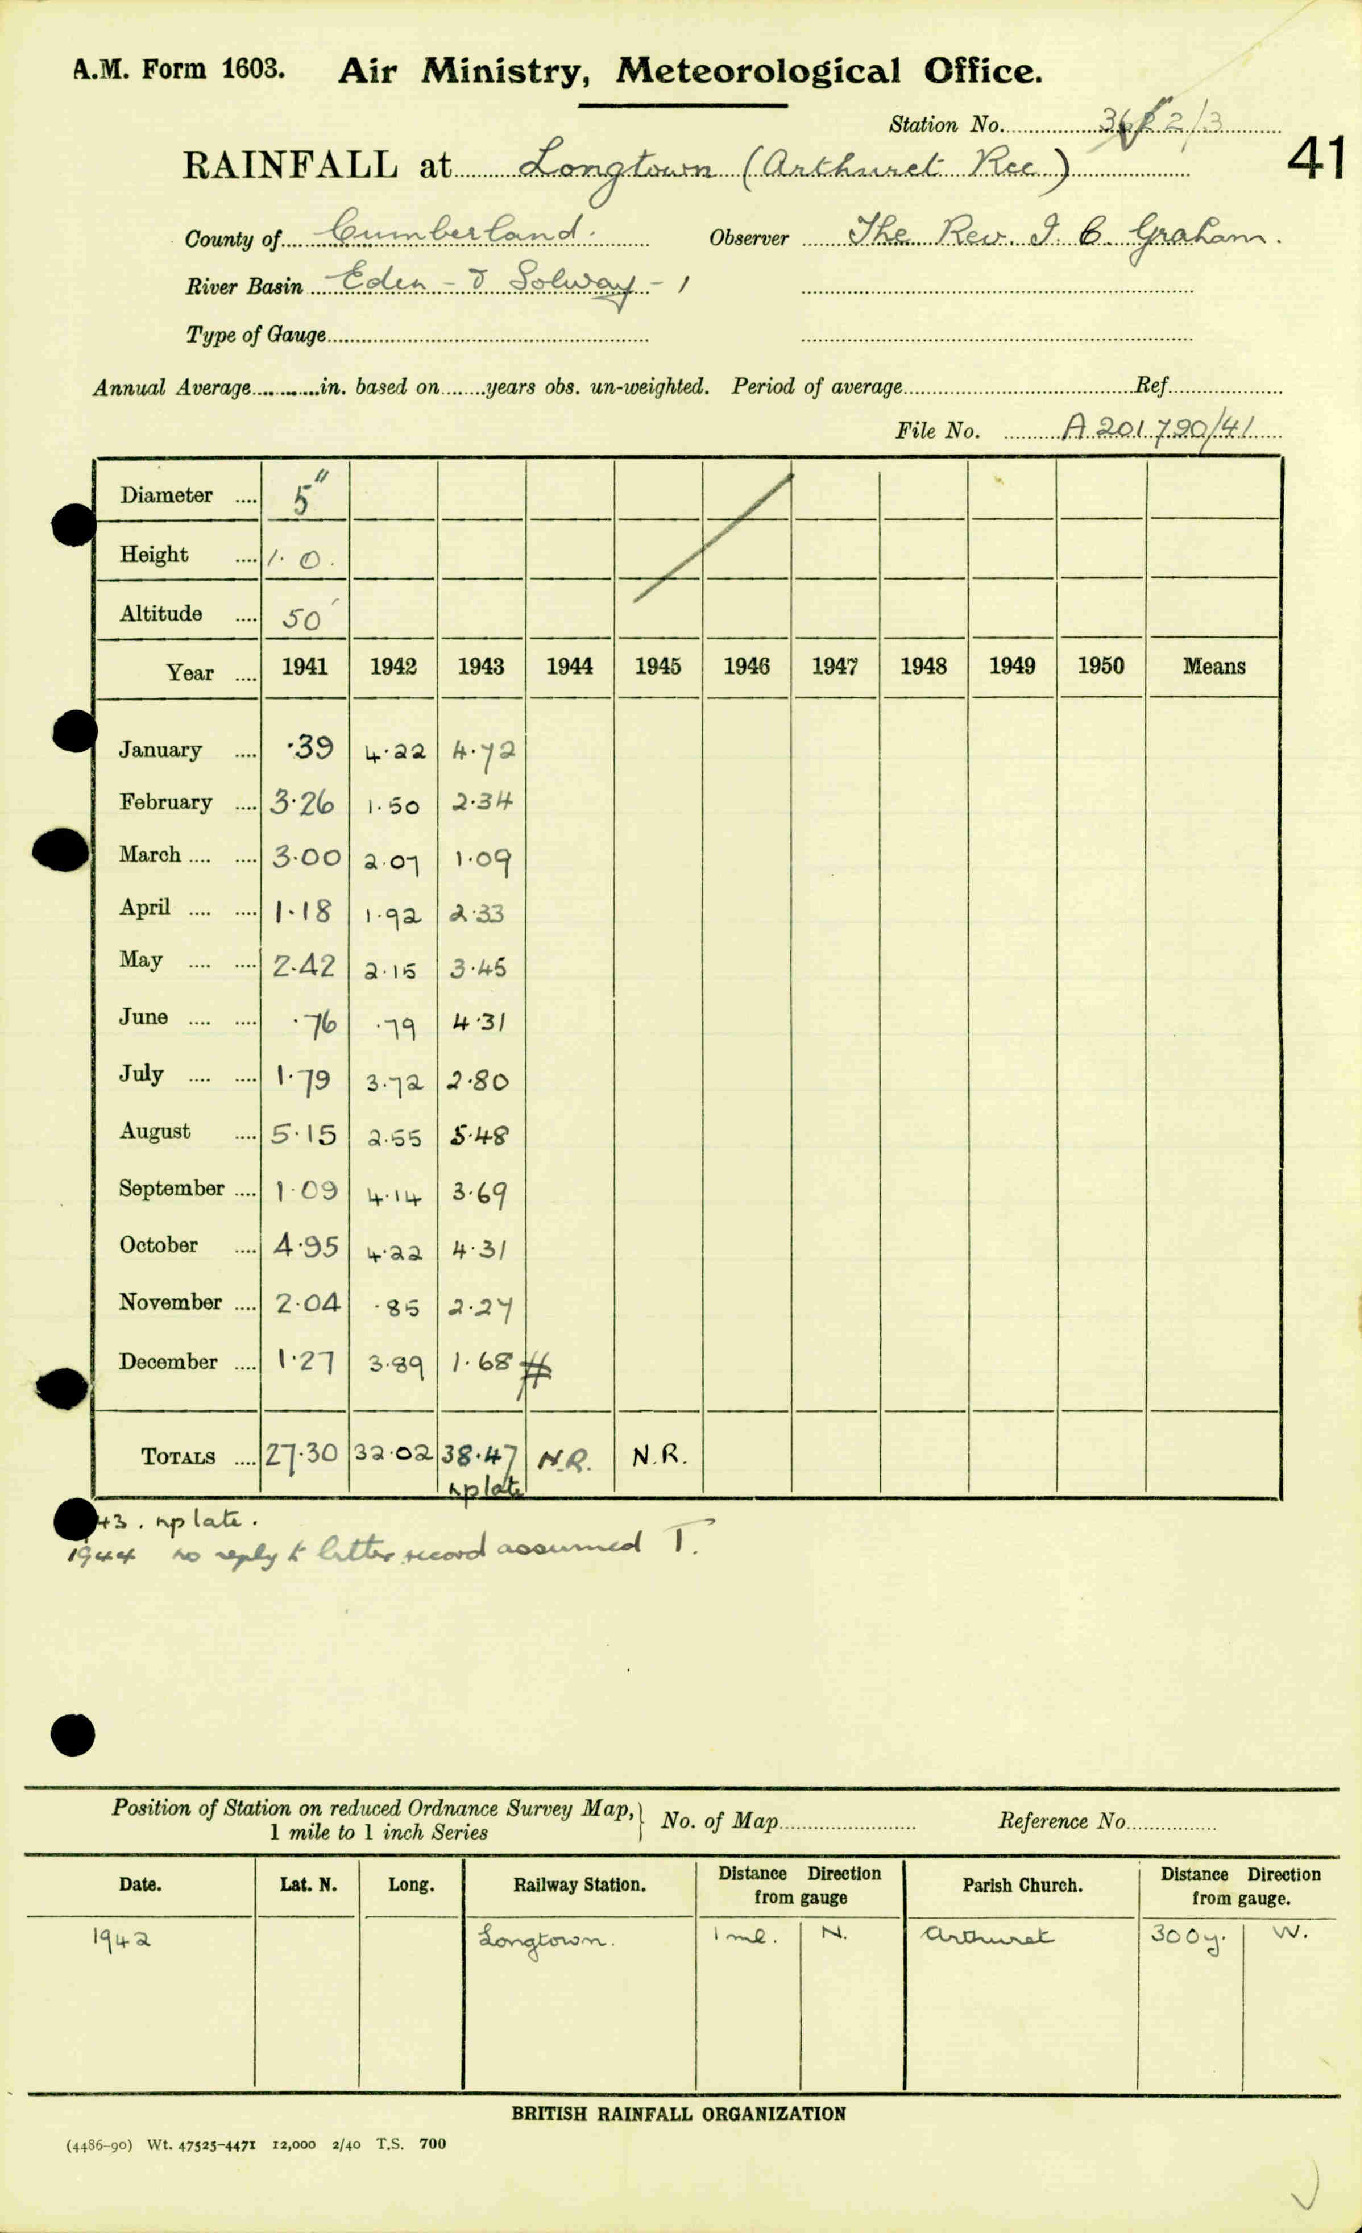 A.M. Form 1603. Air Ministry, Meteorological Office.
Station No. 2/3
RAINFALL at Longtown (Arthuret Rec) 41
County of Cumberland. Observer The Rev. I. C. Graham.
River Basin Eden - & Solway - 1
Type of Gauge
Annual Average in. based on years obs. un-weighted. Period of average Ref.
File No. A 201790/41
Diameter .... 5"
Height .... 1. 0.
Altitude .... 50'
Year .... 1941 1942 1943 1944 1945 1946 1947 1948 1949 1950 Means
January .... ·39 4·22 4·72
February .... 3·26 1·50 2·34
March .... .... 3·00 2·07 1·09
April .... .... 1·18 1·92 2·33
May .... .... 2·42 2·15 3·45
June .... .... ·76 ·79 4·31
July .... .... 1·79 3·72 2·80
August .... 5·15 2·55 5·48
September .... 1·09 4·14 3·69
October .... 4·95 4·22 4·31
November .... 2·04 ·85 2·27
December .... 1·27 3·89 1·68 #
TOTALS .... 27·30 32·02 38·47 N.R. N.R.
np late
43. np late.
1944 no reply to letter record assumed T.
Position of Station on reduced Ordnance Survey Map, } No. of Map Reference No.
1 mile to 1 inch Series
Date. Lat. N. Long. Railway Station. Distance Direction from gauge Parish Church. Distance Direction from gauge.
1942 Longtown. 1 ml. N. Arthuret 300y. W.
BRITISH RAINFALL ORGANIZATION
(4486-90) Wt. 47525-4471 12,000 2/40 T.S. 700